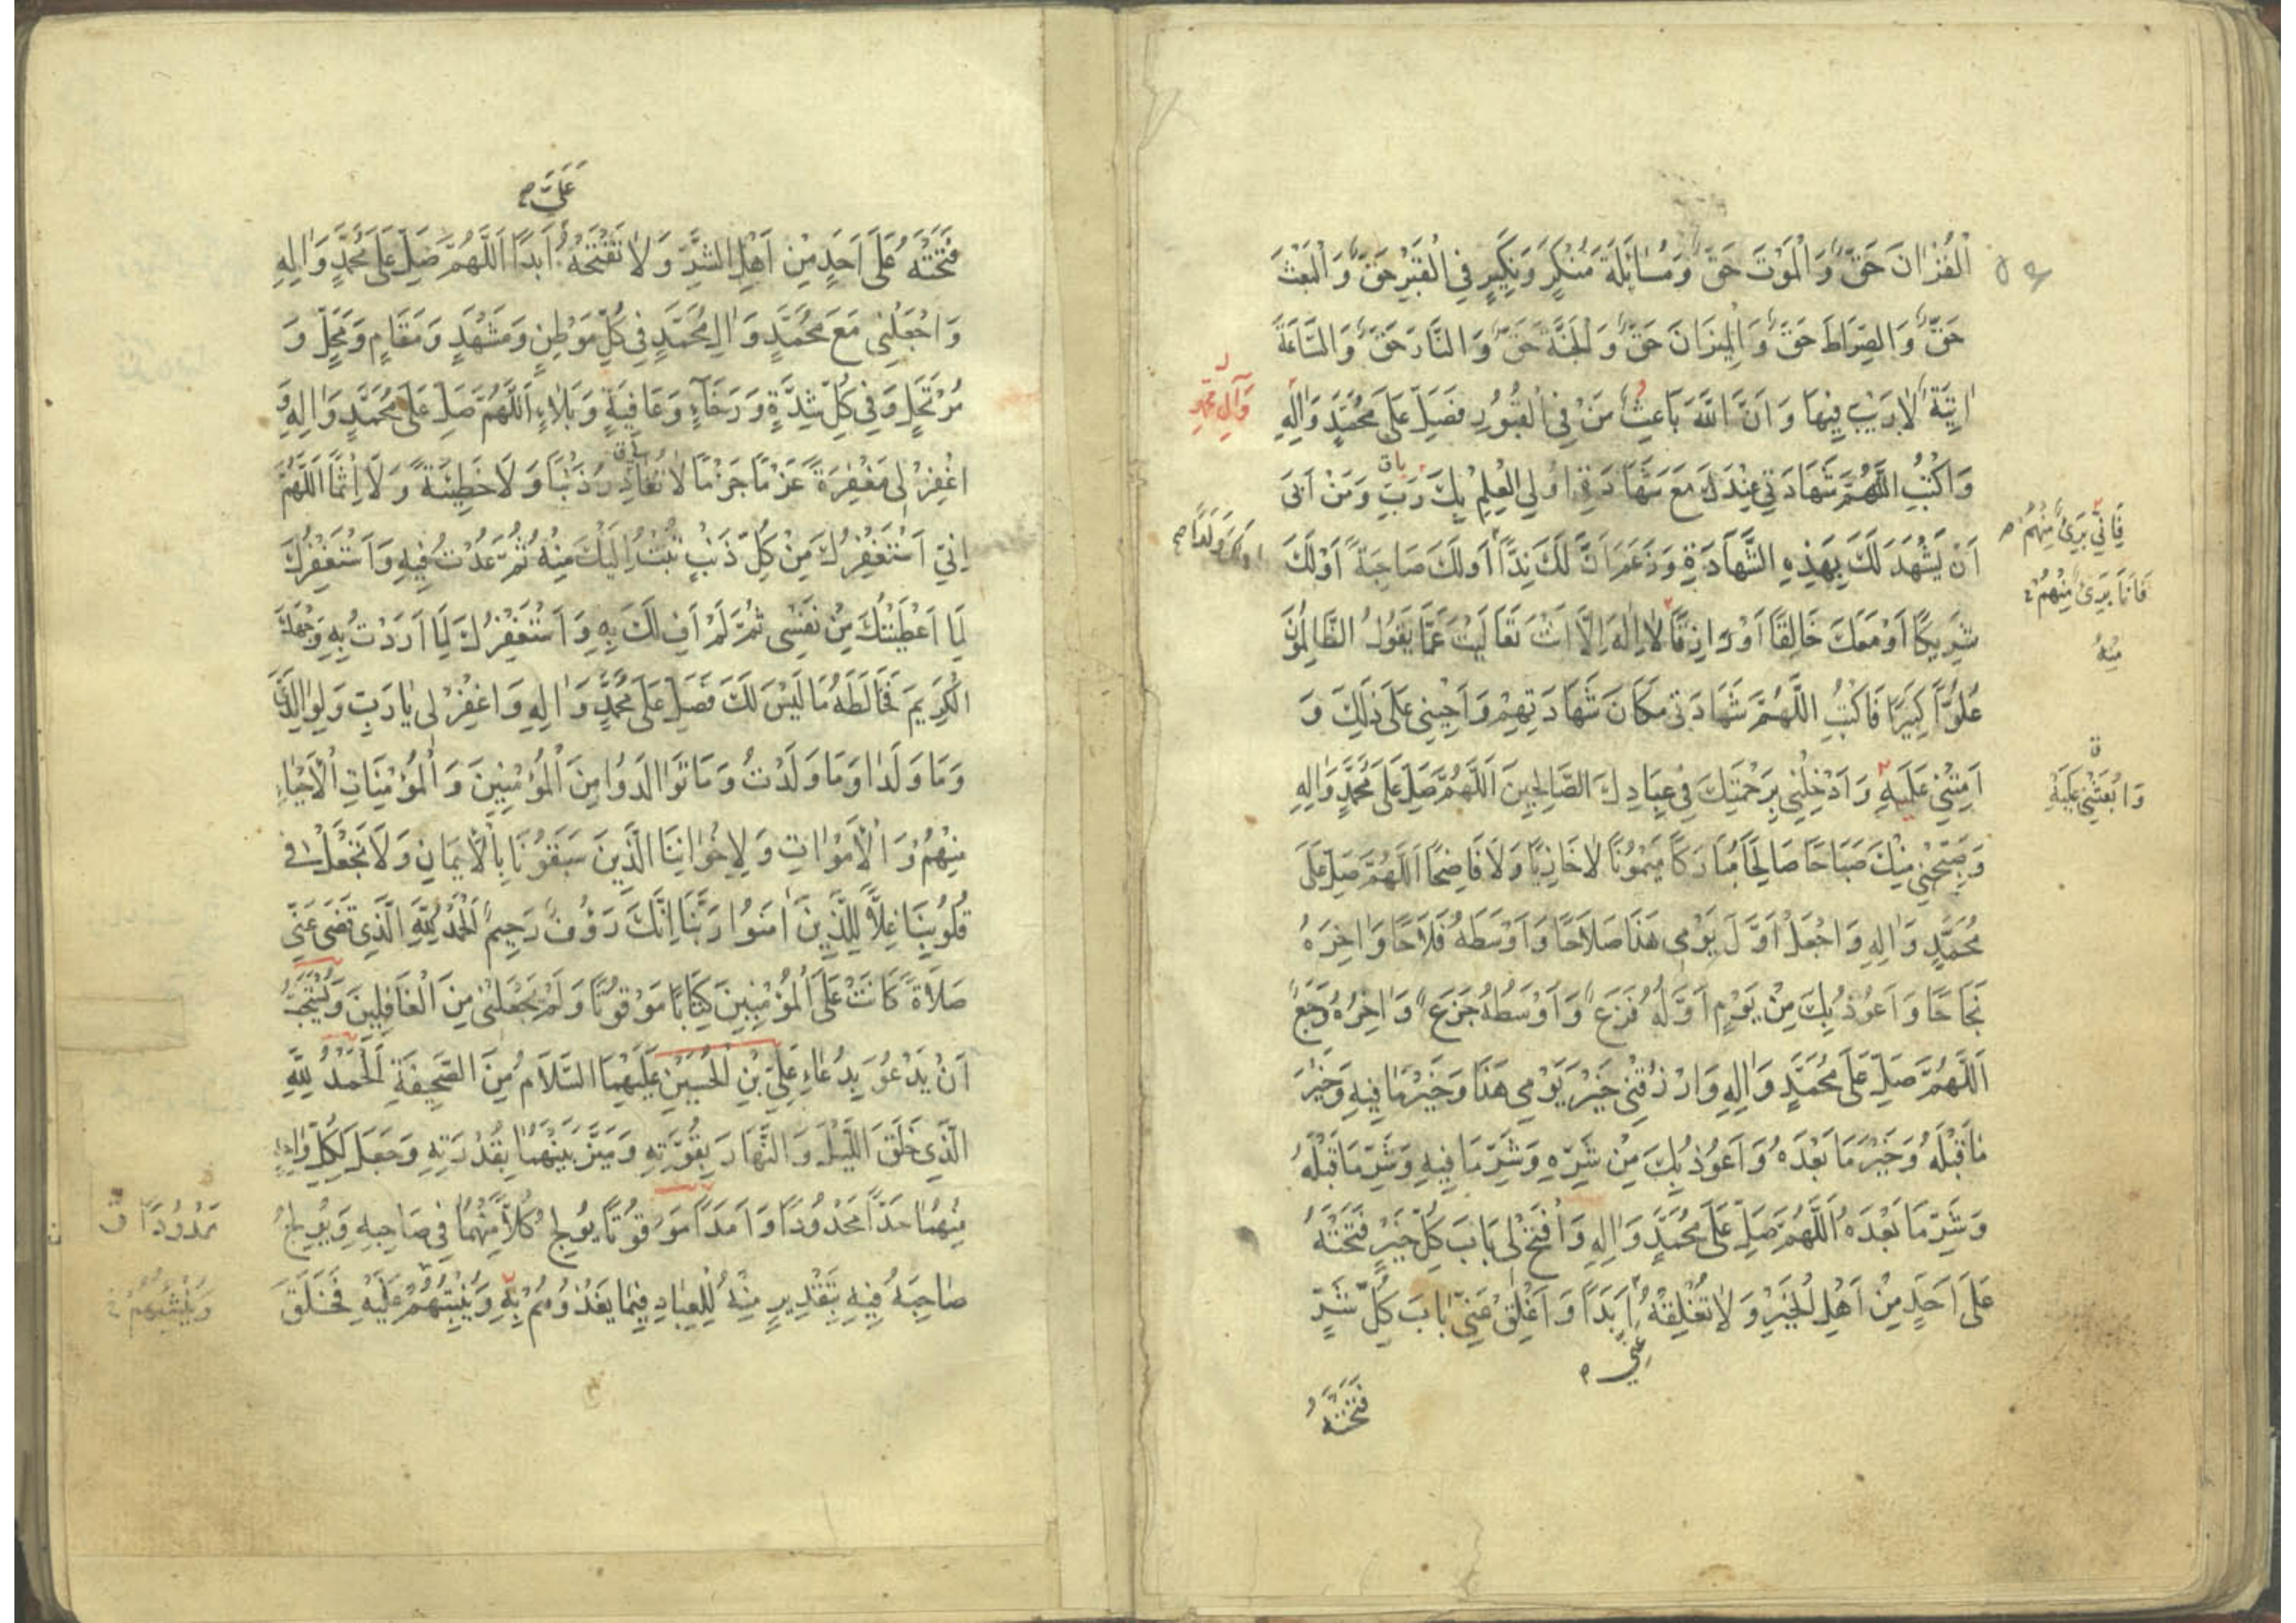 الْقُرْانَ حَقٌّ وَالْمَوْتَ حَقٌّ وَمُسَائَلَةَ مُنْكَرٍ وَنَكِيرٍ فِي الْقَبْرِ حَقٌّ وَالْبَعْثَ
حَقٌّ وَالصِّرَاطَ حَقٌّ وَالْمِيزَانَ حَقٌّ وَالْجَنَّةَ حَقٌّ وَالنَّارَ حَقٌّ وَالسَّاعَةَ
اتِيَةٌ لَارَيْبَ فِيهَا وَاَنَّ اللَّهَ بَاعِثُ مَنْ فِي الْقُبُورِ فَصَلِّ عَلَى مُحَمَّدٍ وَالِهِ
وَآلِ مُحَمَّدٍ
وَاكْتُبِ اللَّهُمَّ شَهَادَتِي عِنْدَكَ مَعَ شَهَادَةِ اُولِي الْعِلْمِ بِكَ رَبِّ وَمَنْ اَبَى
اَنْ يَشْهَدَ لَكَ بِهَذِهِ الشَّهَادَةِ وَزَعَمَ اَنَّ لَكَ نِدًّا اَوْلَكَ صَاحِبَةً اَوْلَكَ
اولك وَلَدًا
فَاِنِّي بَرِيءٌ مِنْهُمْ
فَاَنَا بَرِيءٌ مِنْهُمْ
مِنْهُ
شَرِيكًا اَوْمَعَكَ خَالِقًا اَوْ رَازِقًا لَا اِلَهَ اِلَّا اَنْتَ تَعَالَيْتَ عَمَّا يَقُولُ الظَّالِمُونَ
عُلُوًّا كَبِيرًا فَاكْتُبِ اللَّهُمَّ شَهَادَتِي مَكَانَ شَهَادَتِهِمْ وَاَحْيِنِي عَلَى ذَلِكَ وَ
اَمِتْنِي عَلَيْهِ وَاَدْخِلْنِي بِرَحْمَتِكَ فِي عِبَادِكَ الصَّالِحِينَ اَللَّهُمَّ صَلِّ عَلَى مُحَمَّدٍ وَالِهِ
وَابْعَثْنِي عَلَيْهِ
وَصَبِّحْنِي مِنْكَ صَبَاحًا صَالِحًا مُبَارَكًا مَيْمُونًا لَا خَازِيًا وَلَا فَاضِحًا اَللَّهُمَّ صَلِّ عَلَى
مُحَمَّدٍ وَالِهِ وَاجْعَلْ اَوَّلَ يَوْمِي هَذَا صَلَاحًا وَاَوْسَطَهُ فَلَاحًا وَاخِرَهُ
نَجَاحًا وَاَعُوذُ بِكَ مِنْ يَوْمٍ اَوَّلُهُ فَزَعٌ وَاَوْسَطُهُ جَزَعٌ وَاخِرُهُ وَجَعٌ
اَللَّهُمَّ صَلِّ عَلَى مُحَمَّدٍ وَالِهِ وَارْزُقْنِي خَيْرَ يَوْمِي هَذَا وَخَيْرَ مَا فِيهِ وَخَيْرَ
مَا قَبْلَهُ وَخَيْرَ مَا بَعْدَهُ وَاَعُوذُ بِكَ مِنْ شَرِّهِ وَشَرِّ مَا فِيهِ وَشَرِّ مَا قَبْلَهُ
وَشَرِّ مَا بَعْدَهُ اَللَّهُمَّ صَلِّ عَلَى مُحَمَّدٍ وَالِهِ وَافْتَحْ لِي بَابَ كُلِّ خَيْرٍ فَتَحْتَهُ
عَلَى اَحَدٍ مِنْ اَهْلِ الْخَيْرِ وَلَا تُغْلِقْهُ اَبَدًا وَاَغْلِقْ عَنِّي بَابَ كُلِّ شَرٍّ
عَنِّي
فَتَحْتَهُ
عَلَيَّ
فَتَحْتَهُ عَلَى اَحَدٍ مِنْ اَهْلِ الشَّرِّ وَلَا تَفْتَحْهُ اَبَدًا اَللَّهُمَّ صَلِّ عَلَى مُحَمَّدٍ وَالِهِ
وَاجْعَلْنِي مَعَ مُحَمَّدٍ وَالِ مُحَمَّدٍ فِي كُلِّ مَوْطِنٍ وَمَشْهَدٍ وَمَقَامٍ وَمَحَلٍّ وَ
مُرْتَحَلٍ وَفِي كُلِّ شِدَّةٍ وَرَخَاءٍ وَعَافِيَةٍ وَبَلَاءٍ اَللَّهُمَّ صَلِّ عَلَى مُحَمَّدٍ وَالِهِ وَ
اغْفِرْ لِي مَغْفِرَةً عَزْمًا جَزْمًا لَا تُغَادِرُ ذَنْبًا وَلَا خَطِيئَةً وَلَا اِثْمًا اَللَّهُمَّ
اِنِّي اَسْتَغْفِرُكَ مِنْ كُلِّ ذَنْبٍ تُبْتُ اِلَيْكَ مِنْهُ ثُمَّ عُدْتُ فِيهِ وَاَسْتَغْفِرُكَ
لِمَا اَعْطَيْتُكَ مِنْ نَفْسِي ثُمَّ لَمْ اَفِ لَكَ بِهِ وَاَسْتَغْفِرُكَ لِمَا اَرَدْتُ بِهِ وَجْهَكَ
الْكَرِيمَ فَخَالَطَهُ مَا لَيْسَ لَكَ فَصَلِّ عَلَى مُحَمَّدٍ وَالِهِ وَاغْفِرْ لِي يَا رَبِّ وَلِوَالِدَيَّ
وَمَا وَلَدَا وَمَا وَلَدْتُ وَمَا تَوَالَدُوا مِنَ الْمُؤْمِنِينَ وَالْمُؤْمِنَاتِ الْاَحْيَاءِ
مِنْهُمْ وَالْاَمْوَاتِ وَلِاِخْوَانِنَا الَّذِينَ سَبَقُونَا بِالْاِيمَانِ وَلَا تَجْعَلْ فِي
قُلُوبِنَا غِلًّا لِلَّذِينَ امَنُوا رَبَّنَا اِنَّكَ رَؤُفٌ رَحِيمٌ اَلْحَمْدُ لِلَّهِ الَّذِي قَضَى عَنِّي
صَلَاةً كَانَتْ عَلَى الْمُؤْمِنِينَ كِتَابًا مَوْقُوتًا وَلَمْ يَجْعَلْنِي مِنَ الْغَافِلِينَ وَيُسْتَحَبُّ
اَنْ يَدْعُوَ بِدُعَاءِ عَلِيِّ بْنِ الْحُسَيْنِ عَلَيْهِمَا السَّلَامُ مِنَ الصَّحِيفَةِ اَلْحَمْدُ لِلَّهِ
الَّذِي خَلَقَ اللَّيْلَ وَالنَّهَارَ بِقُوَّتِهِ وَمَيَّزَ بَيْنَهُمَا بِقُدْرَتِهِ وَجَعَلَ لِكُلِّ وَاحِدٍ
مِنْهُمَا حَدًّا مَحْدُودًا وَاَمَدًا مَوْقُوتًا يُولِجُ كُلًّا مِنْهُمَا فِي صَاحِبِهِ وَيُولِجُ
مَمْدُودًا
صَاحِبَهُ فِيهِ بِتَقْدِيرٍ مِنْهُ لِلْعِبَادِ فِيمَا يَغْذُوهُمْ بِهِ وَيُنْبِتُهُمْ عَلَيْهِ فَخَلَقَ